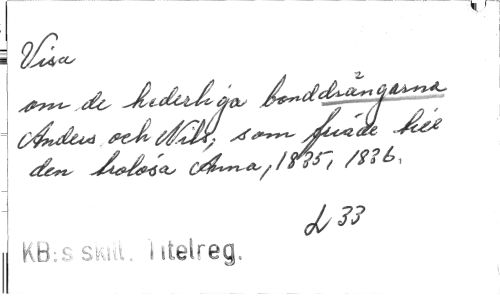 Visa
om de hederliga bonddrängarna
Anders och Nils, som friade till
den trolösa Anna, 1835, 1836.
L 33
KB:s skilt. Titelreg.